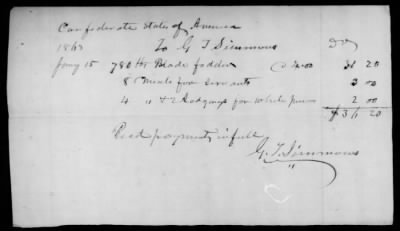 Confederate States of America
1863 To G T Simmons Dr
Jany 15 780 lbs Blade fodder @ 4.00 31 20
8 Meals for servants 3 00
4 " & 2 Lodgings for White 2 00
$ 36 20
Recd payment in full
G. T. Simmons